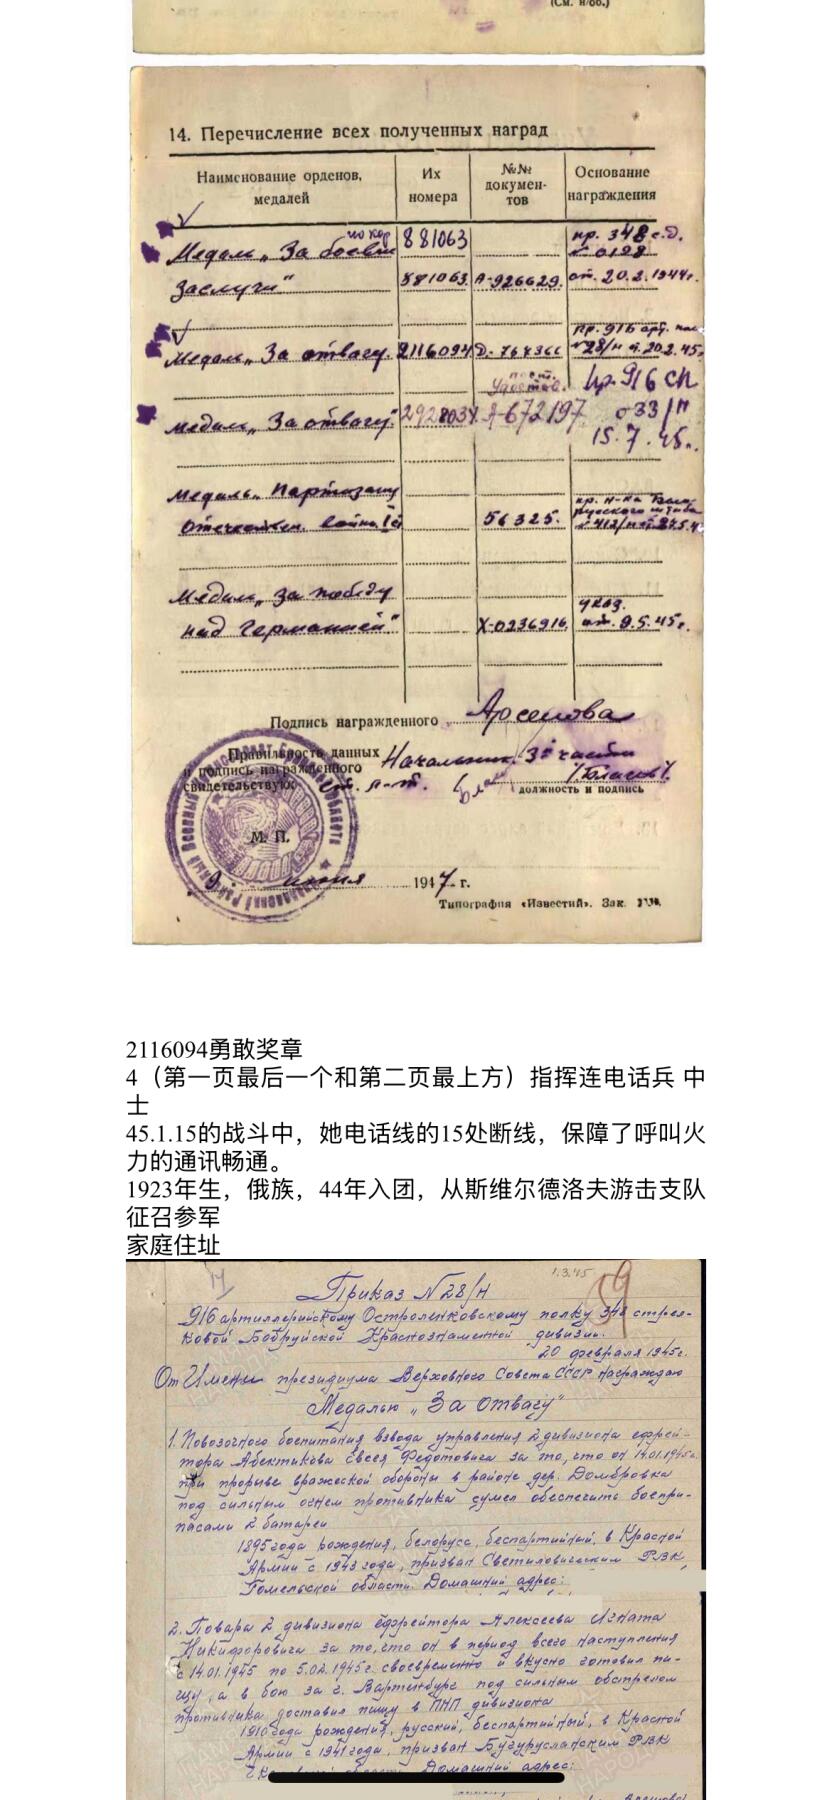 (См. н/об.)
14. Перечисление всех полученных наград
Наименование орденов, медалей
Их номера
№№ документов
Основание награждения
по кор 881063 пр. 348 с.д.
Медаль „За боевые № 0128
заслуги" 881063. А-926629. от. 20.2.1944г.
Медаль „За отвагу. 2116094 Д. 767366 пр. 916 арт. пол
№28/н от 20.2.45г
Удостов. Пр. 916 сп
Медаль „За отвагу" А-672197 033/н
15.7.45г.
Медаль „Партизану
Отечествен. войны 56325.
Медаль „За победу Указ.
над Германией" Х-0236916. от. 9.5.45г.
Подпись награжденного Арсенова
Правильность данных Начальник 3й части
и подпись награжденного
свидетельствую: ст. л-т.
должность и подпись
М. П.
9. июня 1947 г.
Типография «Известий». Зак.
2116094勇敢奖章
4（第一页最后一个和第二页最上方）指挥连电话兵 中
士
45.1.15的战斗中，她电话线的15处断线，保障了呼叫火
力的通讯畅通。
1923年生，俄族，44年入团，从斯维尔德洛夫游击支队
征召参军
家庭住址
1.3.45
59
Приказ №28/н
916 артиллерийскому Остроленковскому полку 348 стрел-
ковой Бобруйской Краснознаменной дивизии.
20 февраля 1945г.
От Имени президиума Верховного Совета СССР награждаю
Медалью „За отвагу"
1. Повозочного боепитания взвода управления 2 дивизиона ефрей-
тора Абектикова Евсея Федотовича за то, что он 14.01.1945г.
при прорыве вражеской обороны в районе дер. Домбровка
под сильным огнем противника сумел обеспечить боепри-
пасами 2 батареи
1895 года рождения, белорус, беспартийный, в Красной
Армии с 1943 года, призван Светиловическим РВК,
Гомельской области. Домашний адрес:
2. Повара 2 дивизиона ефрейтора Алексеева Игната
Никифоровича за то, что он в период всего наступления
с 14.01.1945 по 5.02.1945г. своевременно и вкусно готовил пи-
щу, а в бою за г. Вартенбург под сильным обстрелом
противника доставил пищу в ПНП дивизиона
1910 года рождения, русский, беспартийный, в Красной
Армии с 1941 года, призван Бугурусланским РВК
Чкаловской области Домашний адрес: